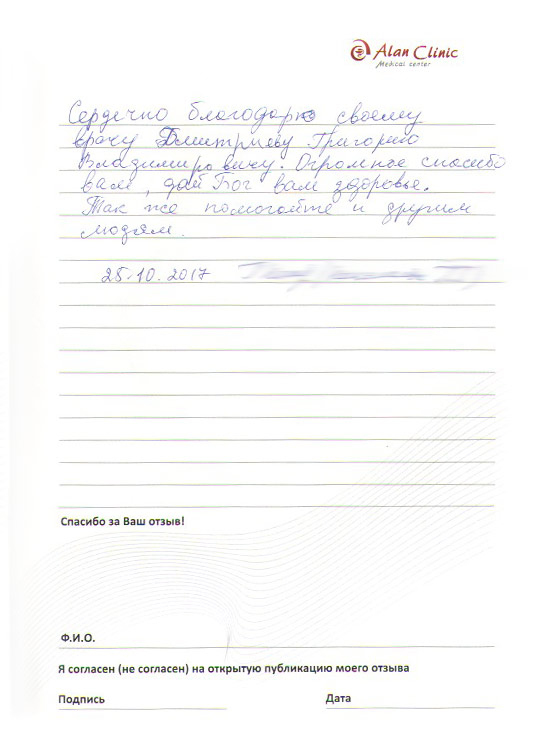 Alan Clinic
Medical center
Сердечно благодарю своему
врачу Дмитриеву Григорию
Владимировичу. Огромное спасибо
вам, дай Бог вам здоровье.
Так же помогайте и другим
людям.
25.10.2017
Спасибо за Ваш отзыв!
Ф.И.О.
Я согласен (не согласен) на открытую публикацию моего отзыва
Подпись Дата